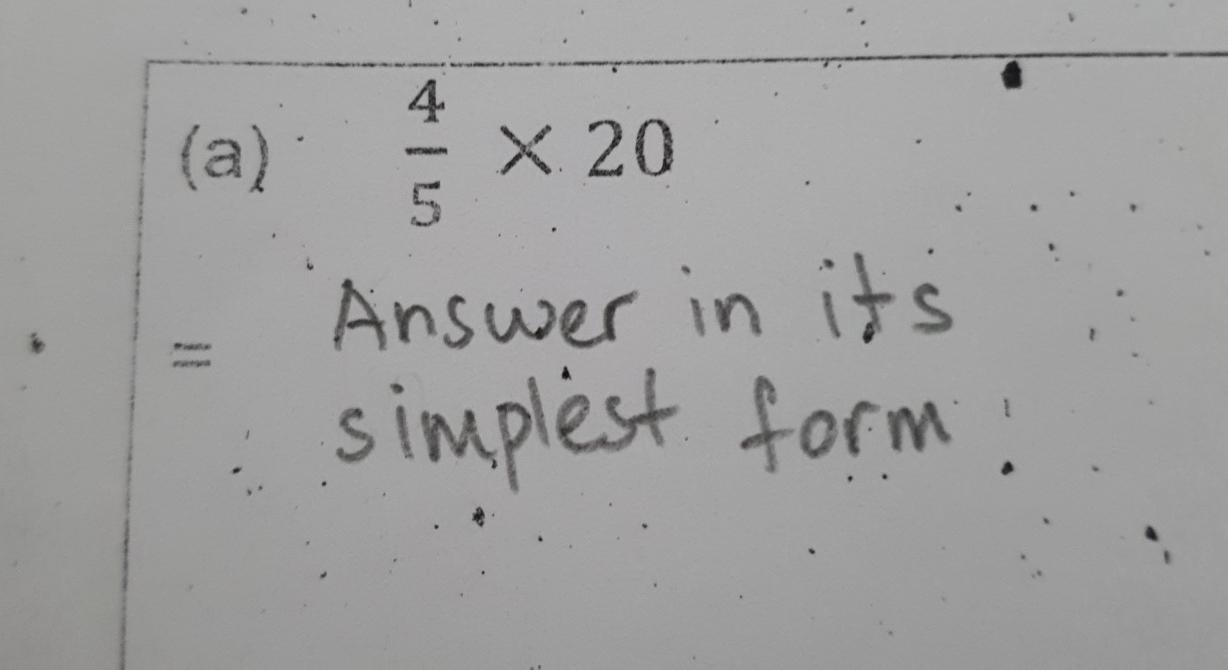 (a) 4/5 × 20
= Answer in its
simplest form